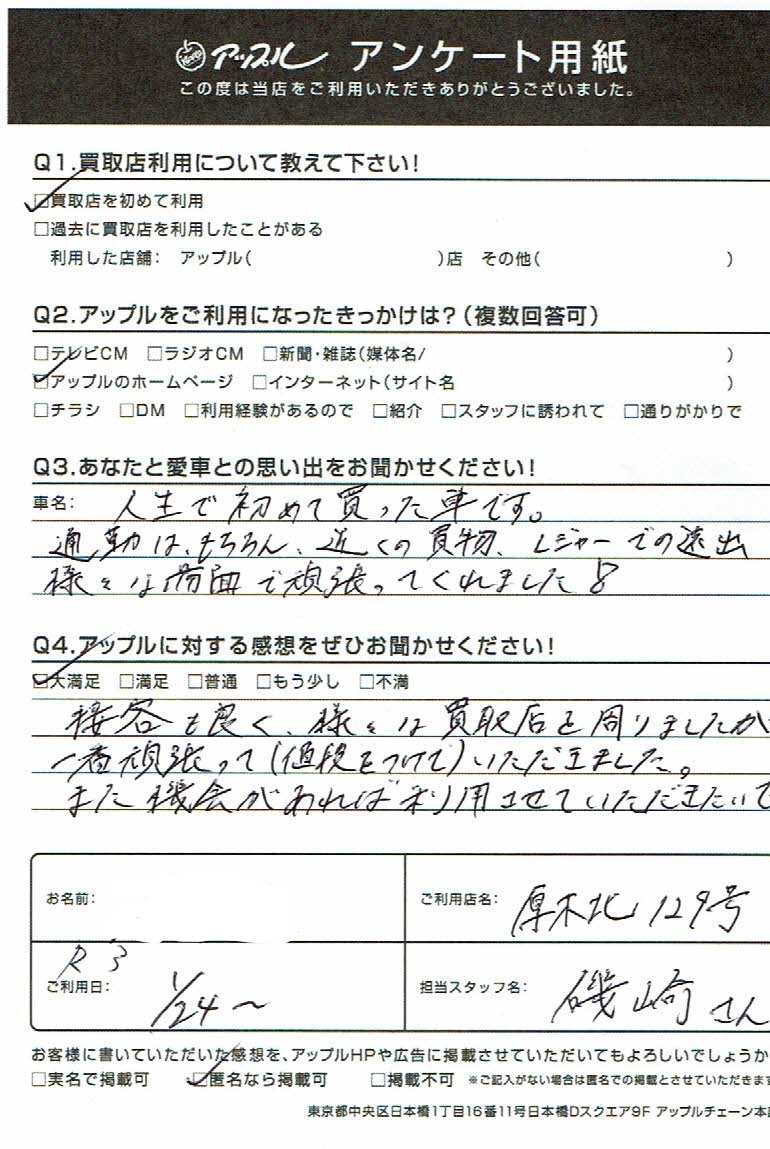 アップル アンケート用紙
この度は当店をご利用いただきありがとうございました。
Q1.買取店利用について教えて下さい!
☑買取店を初めて利用
□過去に買取店を利用したことがある
利用した店舗: アップル( )店 その他( )
Q2.アップルをご利用になったきっかけは?(複数回答可)
□テレビCM □ラジオCM □新聞・雑誌(媒体名/ )
☑アップルのホームページ □インターネット(サイト名 )
□チラシ □DM □利用経験があるので □紹介 □スタッフに誘われて □通りがかりで
Q3.あなたと愛車との思い出をお聞かせください!
車名: 人生で初めて買った車です。
通勤は、もちろん、近くの買物、レジャーでの遠出
様々な場面で頑張ってくれました!
Q4.アップルに対する感想をぜひお聞かせください!
☑大満足 □満足 □普通 □もう少し □不満
接客も良く、様々な買取店を周りましたが
一番頑張って(値段をつけて)いただきました。
また機会があれば利用させていただきたいで
お名前: ご利用店名: 厚木北129号
R3
ご利用日: 1/24〜 担当スタッフ名: 磯崎さん
お客様に書いていただいた感想を、アップルHPや広告に掲載させていただいてもよろしいでしょうか
□実名で掲載可 ☑匿名なら掲載可 □掲載不可 ※ご記入がない場合は匿名での掲載とさせていただきます
東京都中央区日本橋1丁目16番11号日本橋Dスクエア9F アップルチェーン本